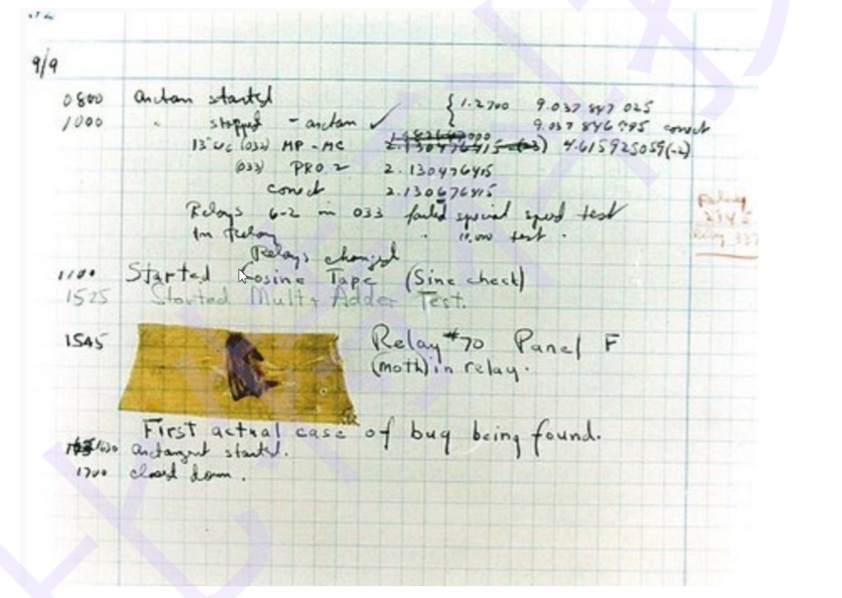 9/9
0800 antan started { 1.2700 9.037 847 025
1000 " stopped - antan ✓ 9.037 846 995 conect
13"uc (032) MP - MC 2.130476415 (-3) 4.615925059(-2)
(033) PRO 2 2.130476415
conect 2.130676415
Relays 6-2 in 033 failed special speed test
in relay " 10.000 test "
Relays changed
Relay
1100 Started Cosine Tape (Sine check)
1525 Started Mult + Adder Test.
1545 Relay #70 Panel F
(moth) in relay.
First actual case of bug being found.
1630 antangent started.
1700 closed down.